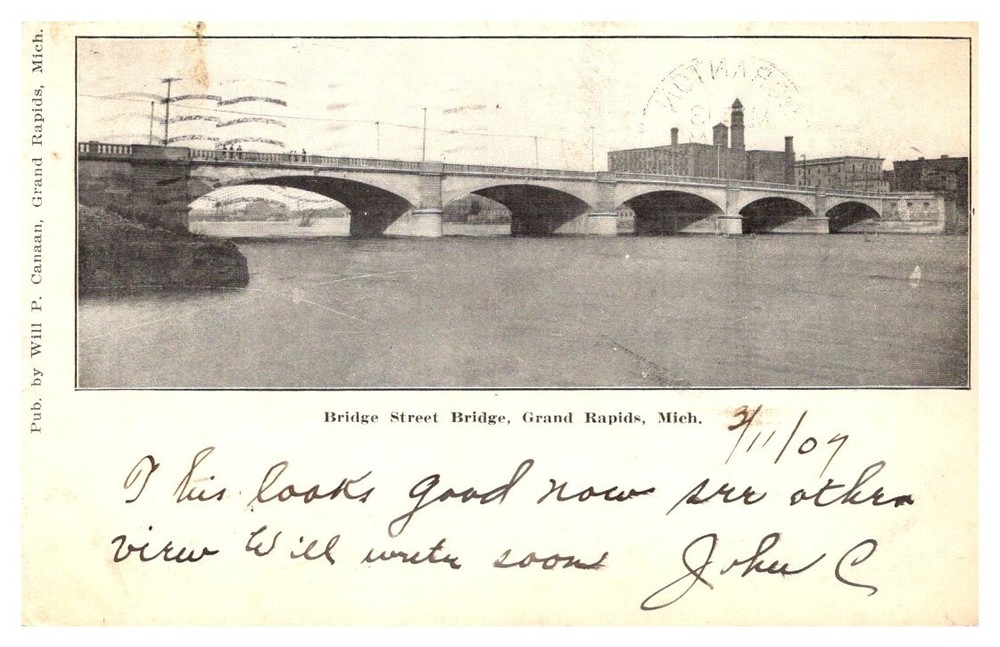 Pub. by Will P. Canaan, Grand Rapids, Mich.
Bridge Street Bridge, Grand Rapids, Mich.
3/11/07
This looks good now see other
view Will write soon John C